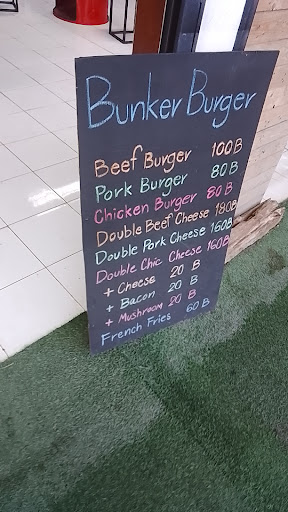 Bunker Burger
Beef Burger 100B
Pork Burger 80 B
Chicken Burger 80 B
Double Beef Cheese 180B
Double Pork Cheese 160B
Double Chic Cheese 160B
+ Cheese 20 B
+ Bacon 20 B
+ Mushroom 20 B
French Fries 60 B